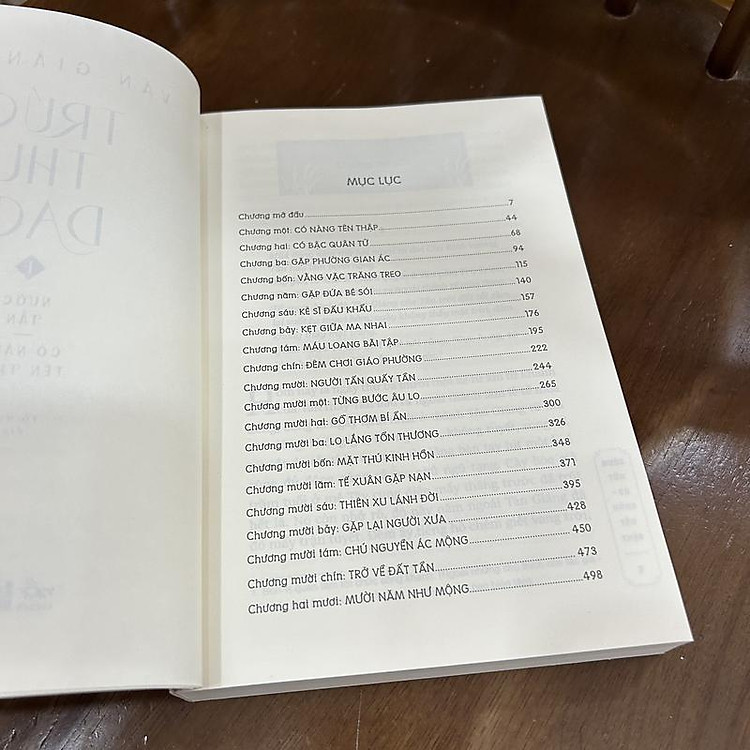 VÂN GIAN
TRÚC
THƯ
DAO
1
NƯỚC
TẤN
CÔ NÀN
TÊN TH
MỤC LỤC
Chương mở đầu 7
Chương một: CÓ NÀNG TÊN THẬP 44
Chương hai: CÓ BẬC QUÂN TỬ 68
Chương ba: GẶP PHƯỜNG GIAN ÁC 94
Chương bốn: VẰNG VẶC TRĂNG TREO 115
Chương năm: GẶP ĐỨA BÉ SÓI 140
Chương sáu: KẺ SĨ ĐẤU KHẨU 157
Chương bảy: KẸT GIỮA MA NHAI 176
Chương tám: MÁU LOANG BÃI TẬP 195
Chương chín: ĐÊM CHƠI GIÁO PHƯỜNG 222
Chương mười: NGƯỜI TẤN QUẤY TẦN 244
Chương mười một: TỪNG BƯỚC ÂU LO 265
Chương mười hai: GỖ THƠM BÍ ẨN 300
Chương mười ba: LO LẮNG TỔN THƯƠNG 326
Chương mười bốn: MẶT THÚ KINH HỒN 348
Chương mười lăm: TẾ XUÂN GẶP NẠN 371
Chương mười sáu: THIÊN XU LÁNH ĐỜI 395
Chương mười bảy: GẶP LẠI NGƯỜI XƯA 428
Chương mười tám: CHÚ NGUYỀN ÁC MỘNG 450
Chương mười chín: TRỞ VỀ ĐẤT TẦN 473
Chương hai mươi: MƯỜI NĂM NHƯ MỘNG 498